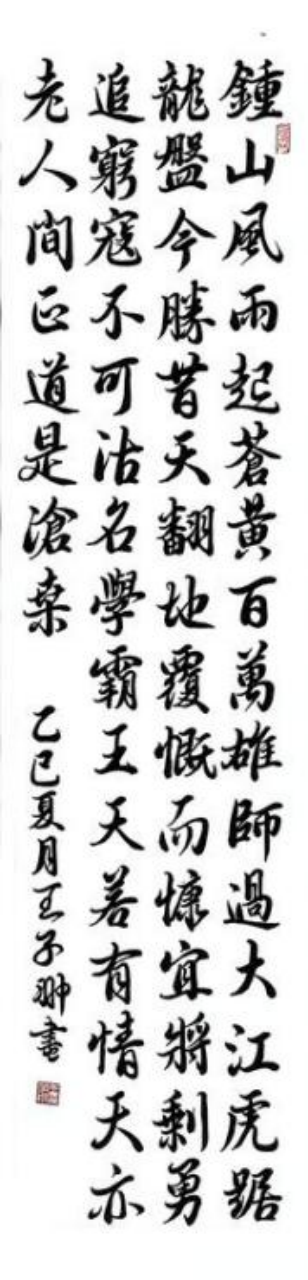 鍾山風雨起蒼黃百萬雄師過大江虎踞
龍盤今勝昔天翻地覆慨而慷宜將剩勇
追窮寇不可沽名學霸王天若有情天亦
老人間正道是滄桑
乙巳夏月王子翀書